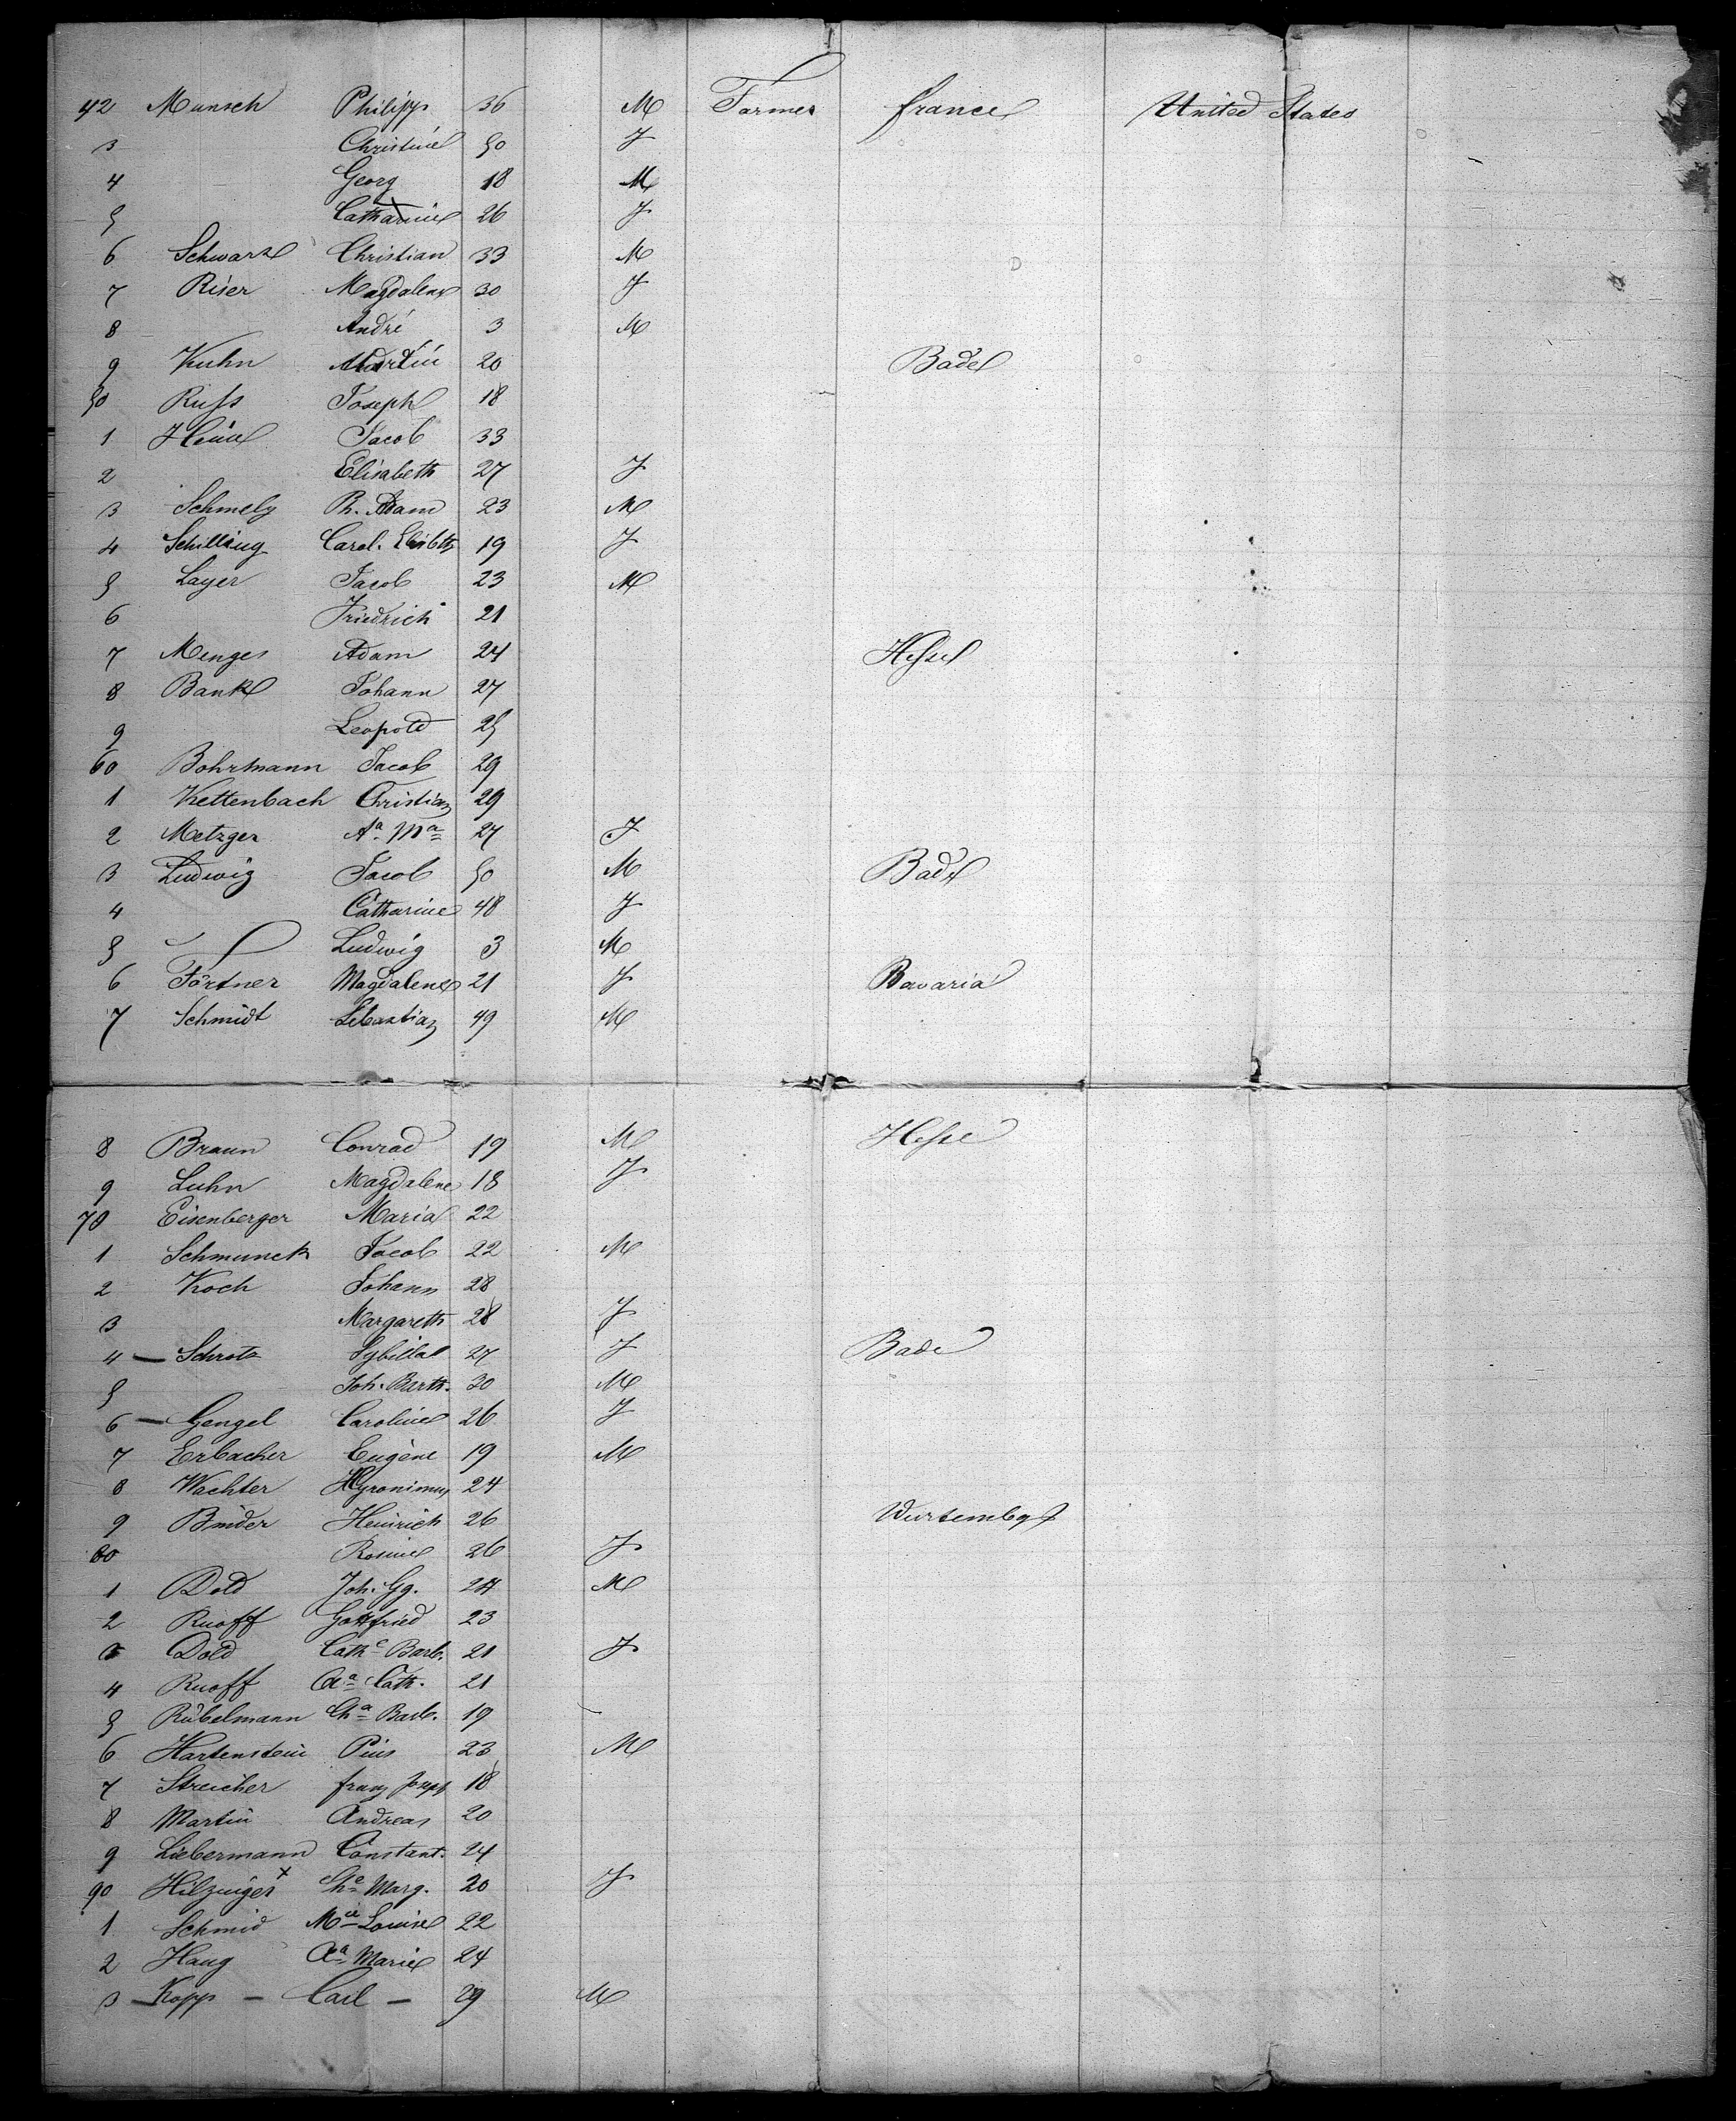 42 Munsch Philipp 36 M Farmer france United States
3 Christine 50 F
4 Georg 18 M
5 Catharine 26 F
6 Schwarz Christian 33 M
7 Riser Magdalena 30 F
8 André 3 M
9 Kuhn Martin 20 Bade
50 Russ Joseph 18
1 Jacob 33
2 Elisabeth 27 F
3 Schmely Ph. Adam 23 M
4 Schilling Carol. Elisbth 19 F
5 Layer Jacob 23 M
6 Friedrich 21
7 Menges Adam 24 Hesse
8 Bank Johann 27
9 Leopold 25
60 Bohrmann Jacob 29
1 Kettenbach Christian 29
2 Metzger Aa Ma 27 F
3 Ludwig Jacob 50 M Bade
4 Catharine 48 F
5 Ludwig 3 M
6 Förtner Magdalena 21 F Bavaria
7 Schmidt Sebastian 49 M
8 Braun Conrad 19 M Hesse
9 Luhn Magdalene 18 F
70 Eisenberger Maria 22
1 Schmunck Jacob 22 M
2 Koch Johann 28
3 Margareth 28 F
4 — Schrotz Sybilla 27 F Bade
5 Joh. Barth. 30 M
6 — Gengel Caroline 26 F
7 Erbacher Eugène 19 M
8 Wachter Hyronimus 24
9 Binder Heinrich 26 Wurtembgt
80 Rosine 26 F
1 Dold Joh. Gg. 24 M
2 Ruoff Gottfried 23
Dold Cathe Barb. 21 F
4 Ruoff Aa Cath. 21
5 Rübelmann Cha Barb. 19
6 Hartenstein Pius 23 M
7 Streicher franz Joseph 18
8 Martin Andreas 20
9 Liebermann Constant. 24
90 Hilzinger x Che Marg. 20 F
1 Schmid Mie Louise 22
2 Haug Aa Marie 24
3 — Kopp — Carl — 29 M